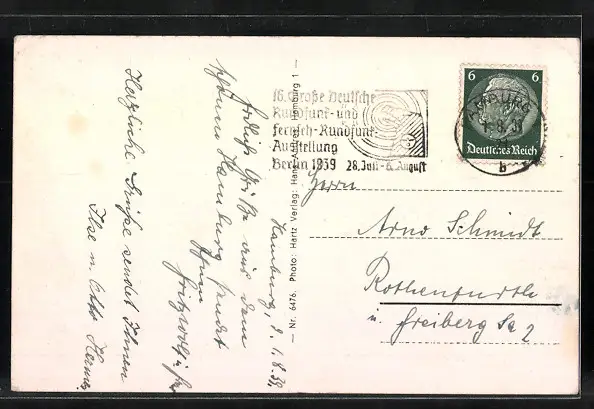 Hamburg, d. 1.8.39.
Grüße aus dem
schönen Hamburg sendet
Ihnen
Herzliche Grüße sendet Ihnen
Ilse u. Otto
– Nr. 6476. Photo: Hartz Verlag: Hamburg 1 –
16. Große Deutsche
Rundfunk- und
Fernseh-Rundfunk-
Ausstellung
Berlin 1939 28. Juli - 6. August
6 6
Deutsches Reich
HAMBURG
1.8.39
b
Herrn
Arno Schmidt
Rothenfurth
u. Freiberg Sa 2